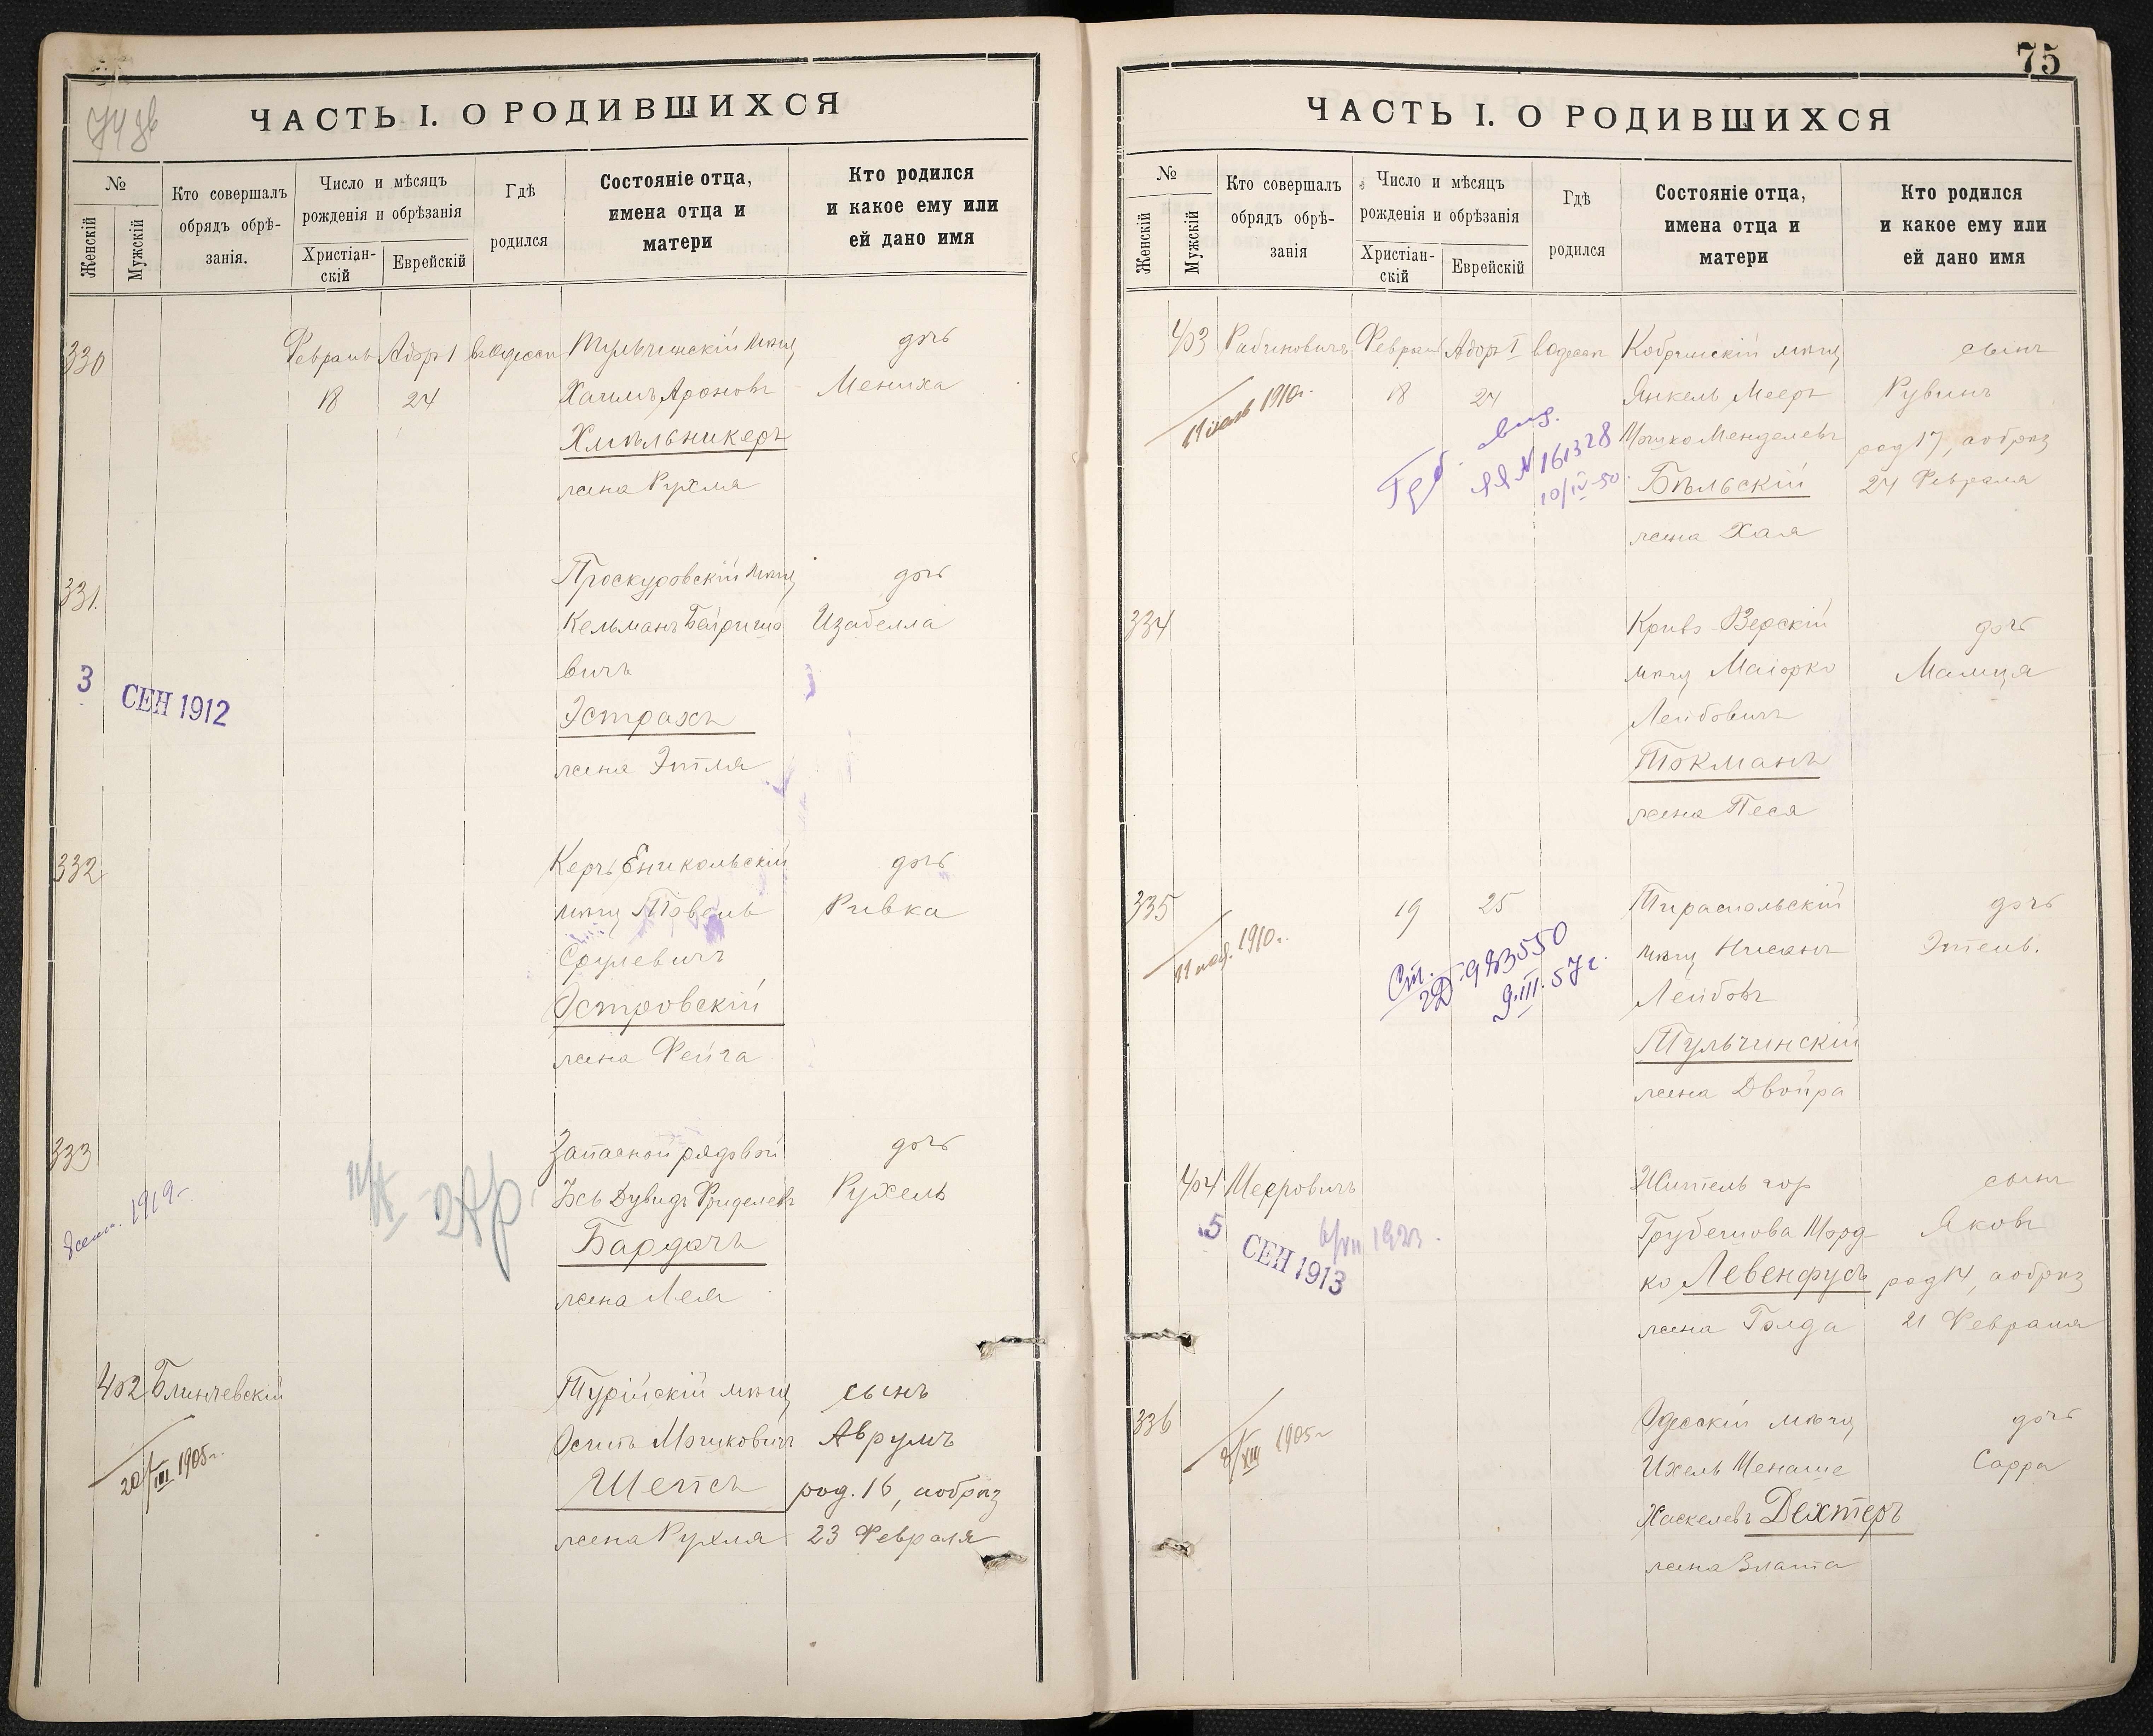 74 зв
ЧАСТЬ I. О РОДИВШИХСЯ
№
Женскій
Мужскій
Кто совершалъ
обрядъ обрѣ-
занія.
Число и мѣсяцъ
рожденія и обрѣзанія
Христіан-
скій
Еврейскій
Гдѣ
родился
Состояніе отца,
имена отца и
матери
Кто родился
и какое ему или
ей дано имя
330
Февраль
18
Адоръ I
24
въ Одессѣ
Тульчинскій мѣщ
Хаимъ Ароновъ
Хмѣльникеръ
жена Рухля
дочь
Мениха
331.
3 СЕН 1912
Проскуровскій мѣщ
Кельманъ
вичъ
Эстрахъ
жена Этля
дочь
Изабелла
332
Керчь Еникольскій
мѣщ Товель
Срулевичъ
Островскій
жена Фейга
дочь
Ривка
333
1919
Запасной рядовой
Дувидъ
Бардачъ
жена Лея
дочь
Рухель
402
Блинчевскій
20/III 1905г.
Турійскій мѣщ
Осипъ Мошковичъ
Шепсъ
жена Рухля
сынъ
Аврумъ
род. 16, а обрѣз
23 Февраля
75
ЧАСТЬ I. О РОДИВШИХСЯ
№
Женскій
Мужскій
Кто совершалъ
обрядъ обрѣ-
занія
Число и мѣсяцъ
рожденія и обрѣзанія
Христіан-
скій
Еврейскій
Гдѣ
родился
Состояніе отца,
имена отца и
матери
Кто родился
и какое ему или
ей дано имя
403
Рабиновичъ
1910г.
Февраль
18
Адоръ I
24
въ Одессѣ
№ 161328
10/IV-50
Кобринскій мѣщ
Янкель Мееръ
Мошко Менделевъ
Бѣльскій
жена Хая
сынъ
Рувинъ
род 17, а обрѣз
24 Февраля
334
Криво-Зерскій
мѣщ Маіорко
Лейбовичъ
Токманъ
жена Песя
дочь
Малция
335
1910г.
19
25
983550
9.III.57г.
Тираспольскій
мѣщ Нисанъ
Лейбовъ
Тульчинскій
жена Двойра
дочь
Этель.
404
Мееровичъ
5 СЕН 1913
6/VII 1923.
Житель гор
Грубешова Морд
ко Левенфусъ
жена Голда
сынъ
Яковъ
род 14, а обрѣз
21 Февраля
336
8/XII 1905г
Одесскій мѣщ
Ихель Менаше
Хаскелевъ Дехтеръ
жена Злата
дочь
Сарра